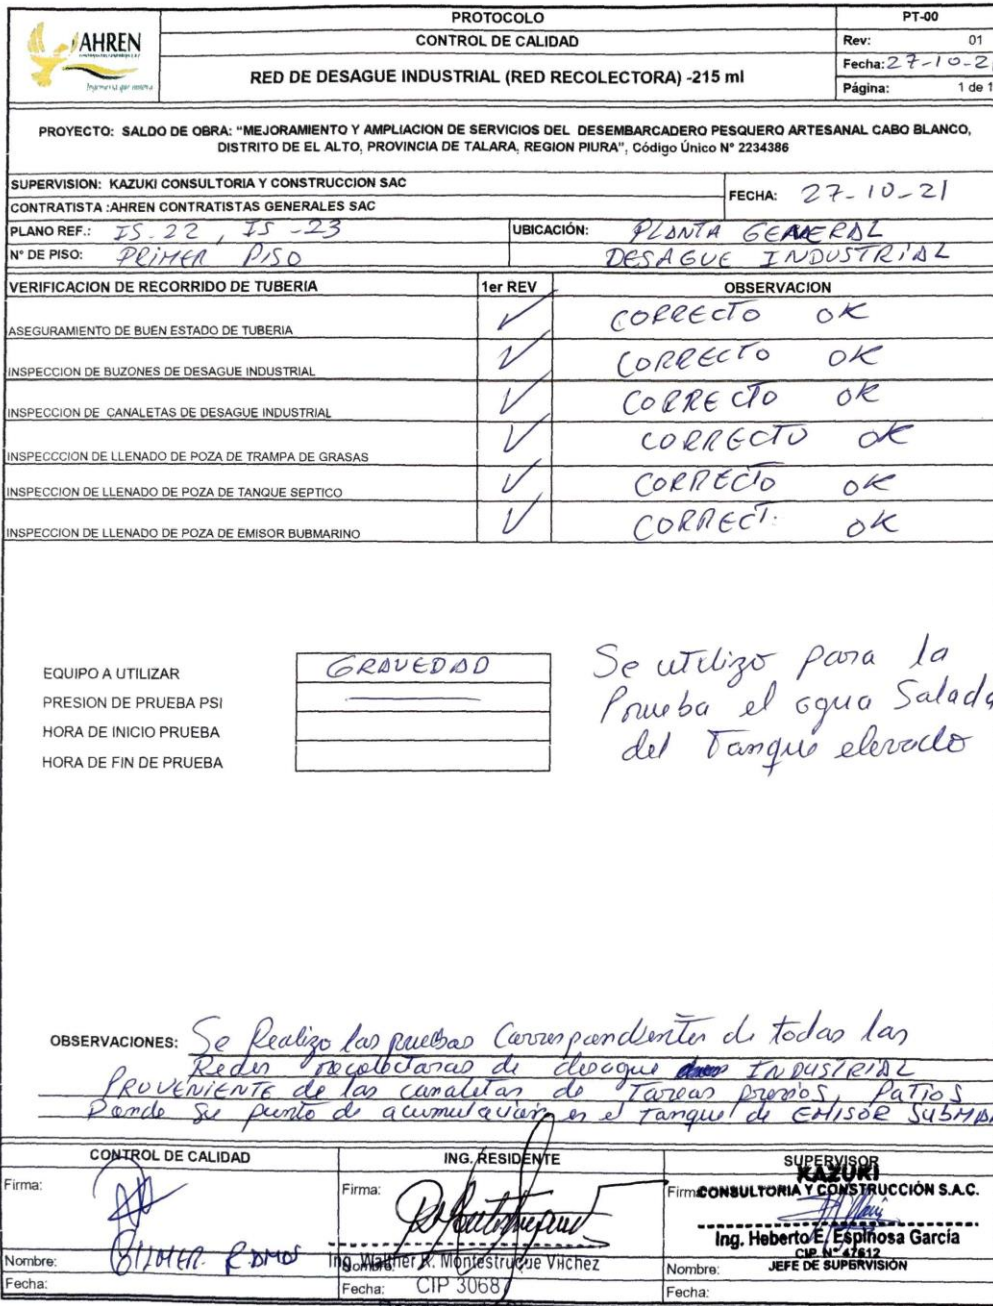 AHREN
Ingeniería que innova
PROTOCOLO
CONTROL DE CALIDAD
RED DE DESAGUE INDUSTRIAL (RED RECOLECTORA) -215 ml
PT-00
Rev: 01
Fecha: 27-10-2
Página: 1 de 1
PROYECTO: SALDO DE OBRA: "MEJORAMIENTO Y AMPLIACION DE SERVICIOS DEL DESEMBARCADERO PESQUERO ARTESANAL CABO BLANCO,
DISTRITO DE EL ALTO, PROVINCIA DE TALARA, REGION PIURA", Código Único N° 2234386
SUPERVISION: KAZUKI CONSULTORIA Y CONSTRUCCION SAC
CONTRATISTA :AHREN CONTRATISTAS GENERALES SAC
FECHA: 27-10-21
PLANO REF.: IS-22, IS-23
UBICACIÓN: PLANTA GENERAL
N° DE PISO: PRIMER PISO
DESAGUE INDUSTRIAL
VERIFICACION DE RECORRIDO DE TUBERIA 1er REV OBSERVACION
ASEGURAMIENTO DE BUEN ESTADO DE TUBERIA ✓ CORRECTO OK
INSPECCION DE BUZONES DE DESAGUE INDUSTRIAL ✓ CORRECTO OK
INSPECCION DE CANALETAS DE DESAGUE INDUSTRIAL ✓ CORRECTO OK
INSPECCCION DE LLENADO DE POZA DE TRAMPA DE GRASAS ✓ CORRECTO OK
INSPECCION DE LLENADO DE POZA DE TANQUE SEPTICO ✓ CORRECTO OK
INSPECCION DE LLENADO DE POZA DE EMISOR BUBMARINO ✓ CORRECT. OK
EQUIPO A UTILIZAR GRAVEDAD
PRESION DE PRUEBA PSI
HORA DE INICIO PRUEBA
HORA DE FIN DE PRUEBA
Se utilizo para la
Prueba el agua Salada
del Tanque elevado
OBSERVACIONES: Se Realizo las pruebas Correspondientes de todas las
Redes recolectoras de desague INDUSTRIAL
PROVENIENTE de las canaletas de Tareas previos, PATIOS
Donde su punto de acumulación es el Tanque de EMISOR SUBMA
CONTROL DE CALIDAD
Firma:
Nombre: GILMER RAMOS
Fecha:
ING. RESIDENTE
Firma:
Ing. Walther R. Montestruque Vilchez
Nombre:
CIP 3068
Fecha:
SUPERVISOR
KAZUKI
Firma:
CONSULTORIA Y CONSTRUCCIÓN S.A.C.
Ing. Heberto E. Espinosa García
CIP. N° 47612
JEFE DE SUPERVISIÓN
Nombre:
Fecha: